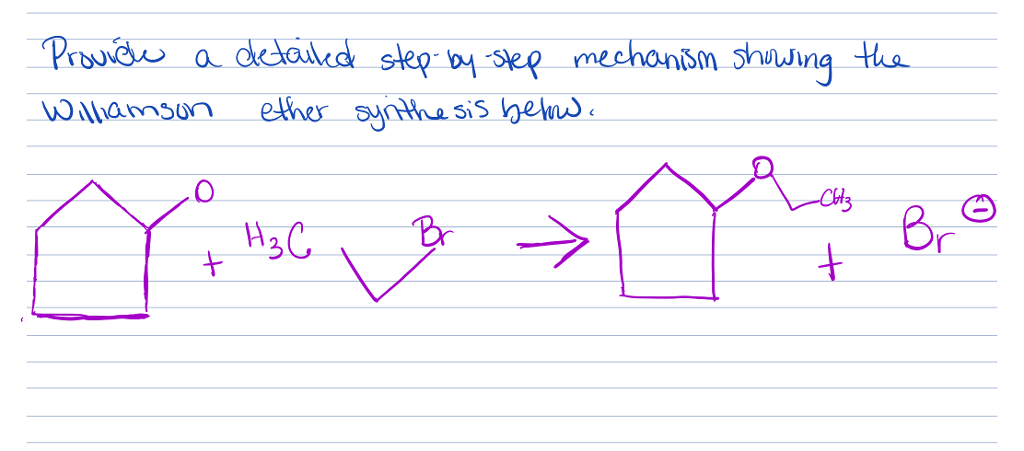 Provide a detailed step-by-step mechanism showing the
Williamson ether synthesis below.
O + H3C Br → O CH3 + Br ⊖